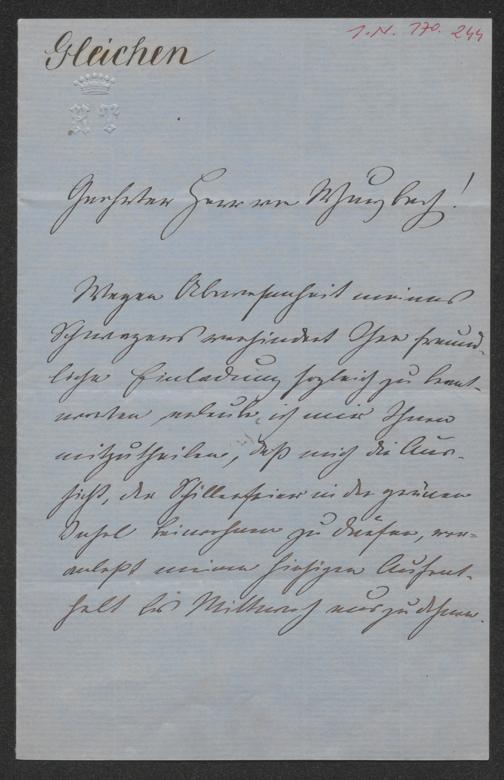 Gleichen
I.N. 170.244
Geehrter Herr von Wurzbach!
Wegen Abwesenheit meines
Schwagers verhindert Ihre freund-
liche Einladung sogleich zu beant-
worten erlaube ich mir Ihnen
mitzutheilen, daß mich die Aus-
sicht, der Schillerfeier in der grünen
Insel beiwohnen zu dürfen, ver-
anlaßt meinen hiesigen Aufent-
halt bis Mittwoch auszudehnen.